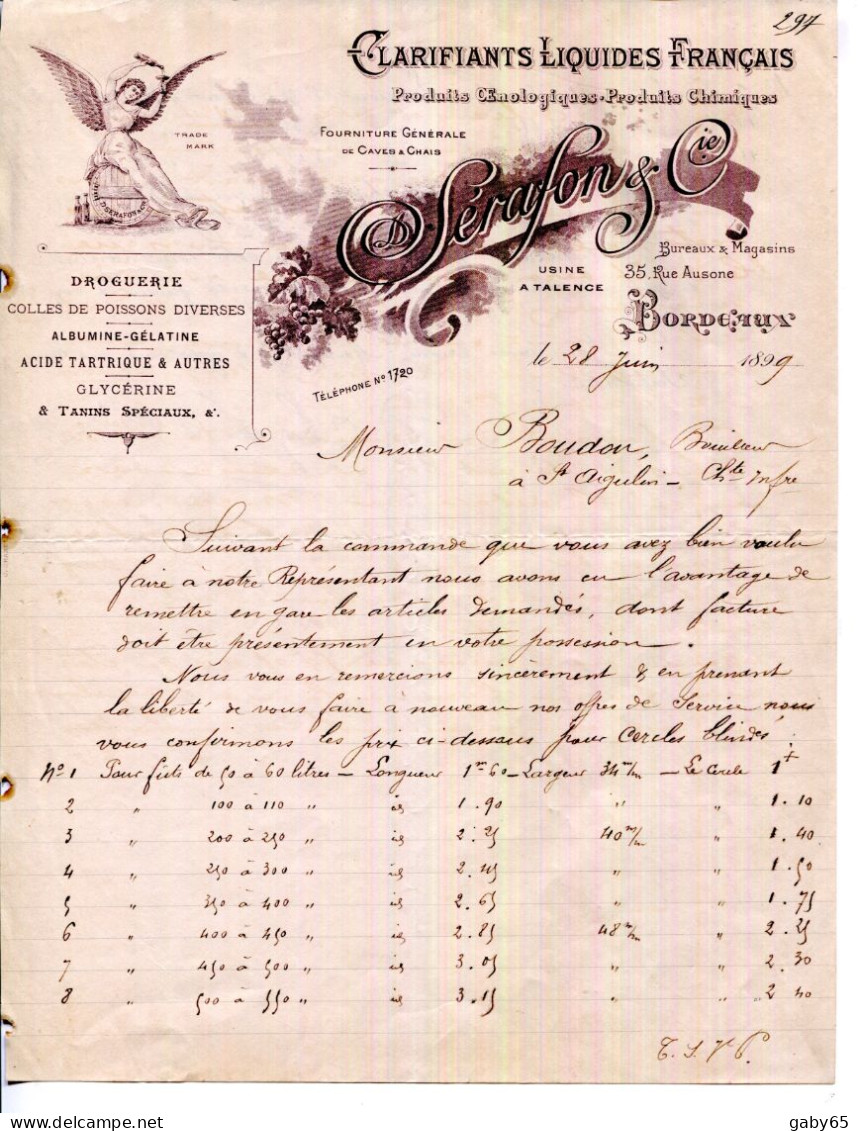 297
CLARIFIANTS LIQUIDES FRANÇAIS
Produits Œnologiques-Produits Chimiques
TRADE
MARK
FOURNITURE GÉNÉRALE
DE CAVES & CHAIS
D. Sérafon & Cie
D. SERAFON & Cie
Bureaux & Magasins
35, Rue Ausone
BORDEAUX
USINE
A TALENCE
DROGUERIE
COLLES DE POISSONS DIVERSES
ALBUMINE-GÉLATINE
ACIDE TARTRIQUE & AUTRES
GLYCÉRINE
& TANINS SPÉCIAUX, &c.
TÉLÉPHONE No 1720
le 28 Juin 1899
Monsieur Boudon,
à St Aigulin - Chte Infre
Suivant la commande que vous avez bien voulu
faire à notre Représentant nous avons eu l'avantage de
remettre en gare les articles demandés, dont facture
doit être présentement en votre possession.
Nous vous en remercions sincèrement & en prenant
la liberté de vous faire à nouveau nos offres de Service nous
vous confirmons les prix ci-dessous pour Cercles blindés :
No 1 Pour futs de 50 à 60 litres - Longueur 1m60 - Largeur 34m/m - Le Cercle 1f
2 " 100 à 110 " id 1.90 " " 1.10
3 " 200 à 250 " id 2.25 40m/m " 1.40
4 " 250 à 300 " id 2.45 " " 1.50
5 " 350 à 400 " id 2.65 " " 1.75
6 " 400 à 450 " id 2.85 48m/m " 2.25
7 " 450 à 500 " id 3.05 " " 2.30
8 " 500 à 550 " id 3.15 " " 2 40
T. S. V. P.
gaby65